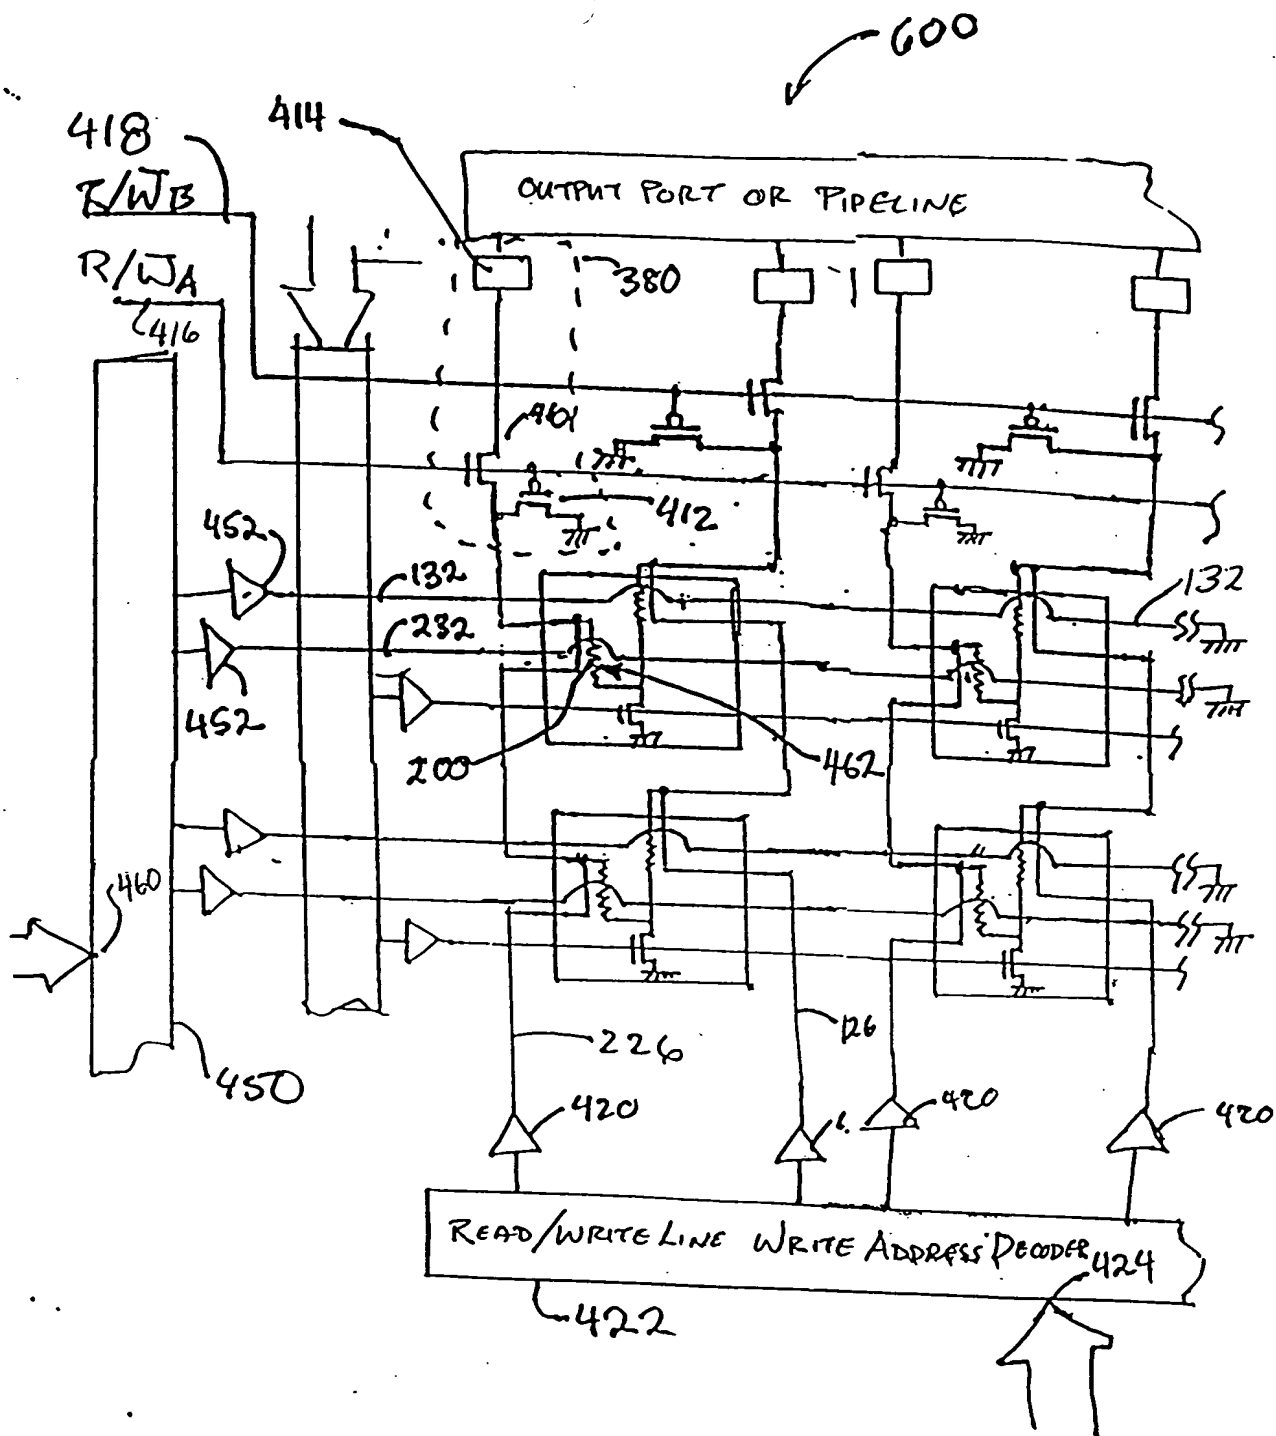 600
414
418
OUTPUT PORT OR PIPELINE
R/WB
R/WA
380
416
461
412
452
132
132
232
452
200
462
460
226
126
450
420
420
420
READ/WRITE LINE WRITE ADDRESS DECODER
424
422